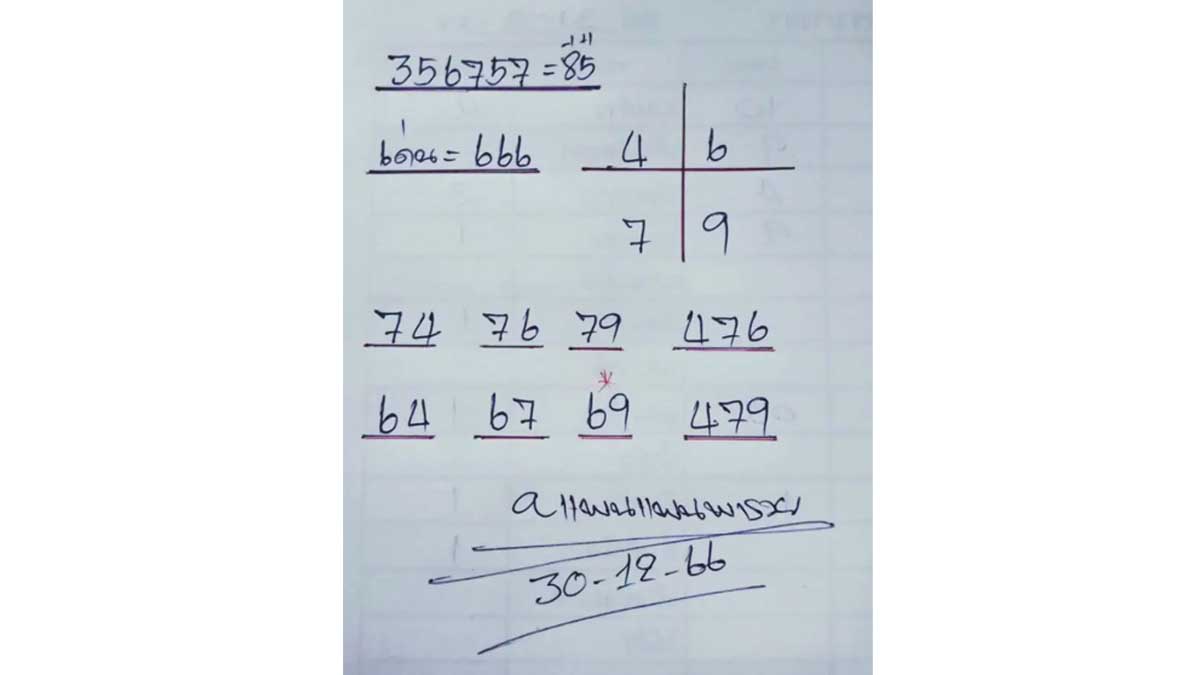 356757 = 85
เด่น = 666
4 6
7 9
74 76 79 476
64 67 69 479
30-12-66